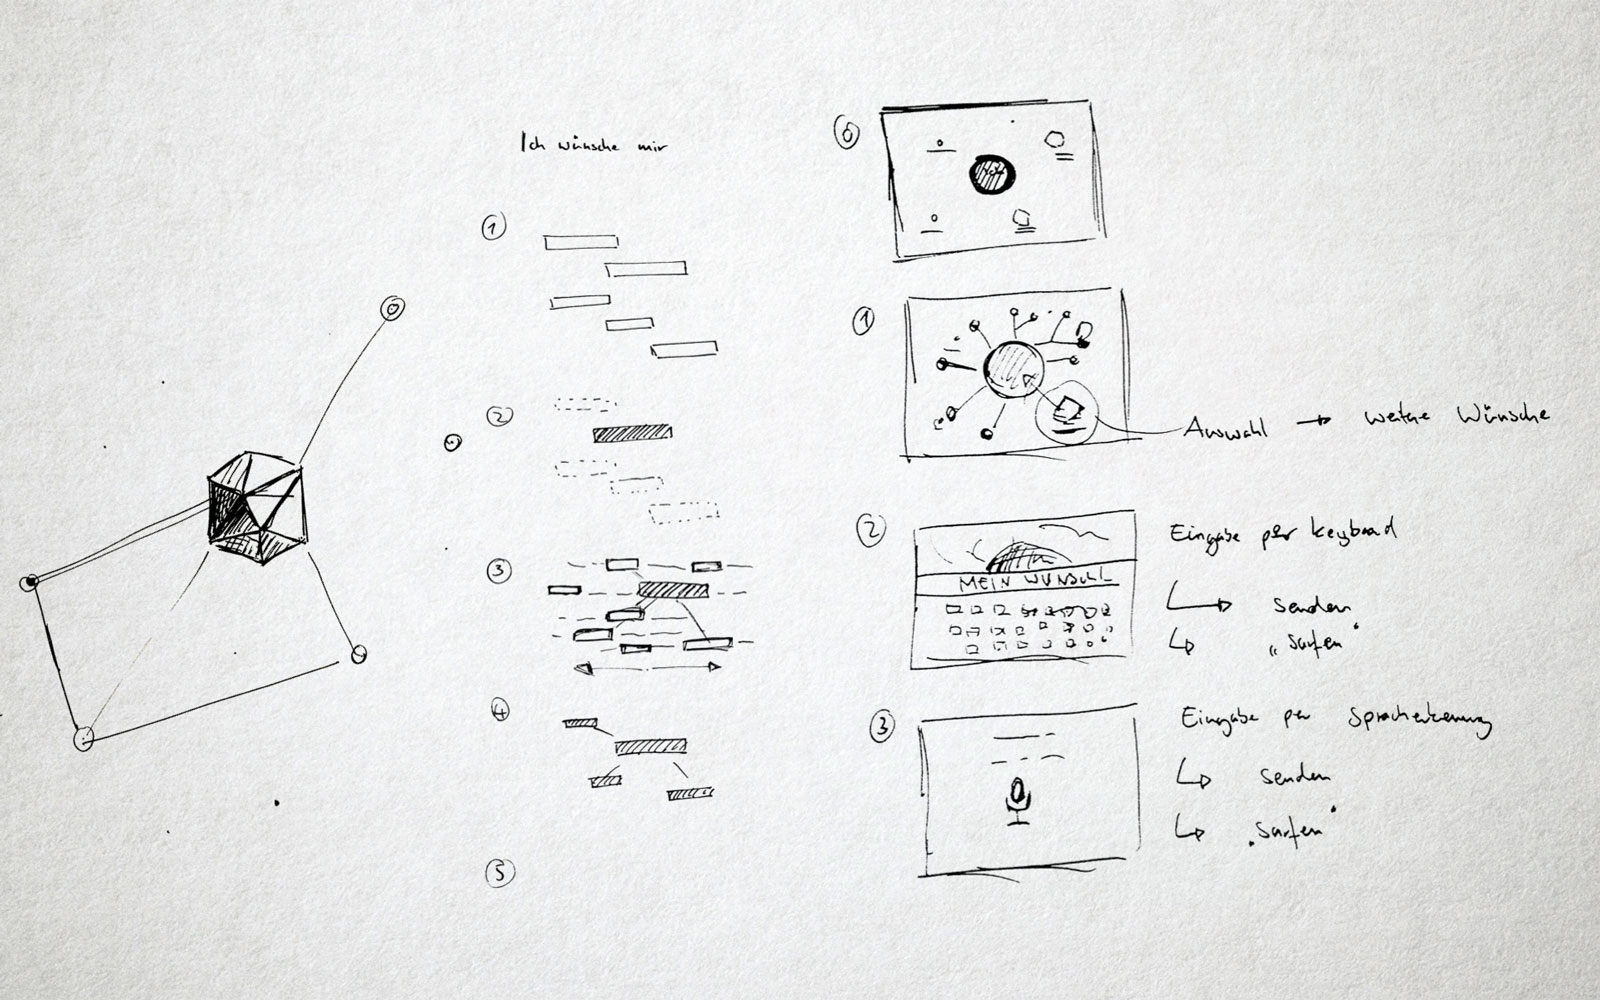 Ich wünsche mir
1
2
3
4
5
0
1
Auswahl → weitere Wünsche
2
MEIN WUNSCH
Eingabe per keyboard
senden
„surfen“
3
Eingabe per Spracherkennung
senden
„surfen“